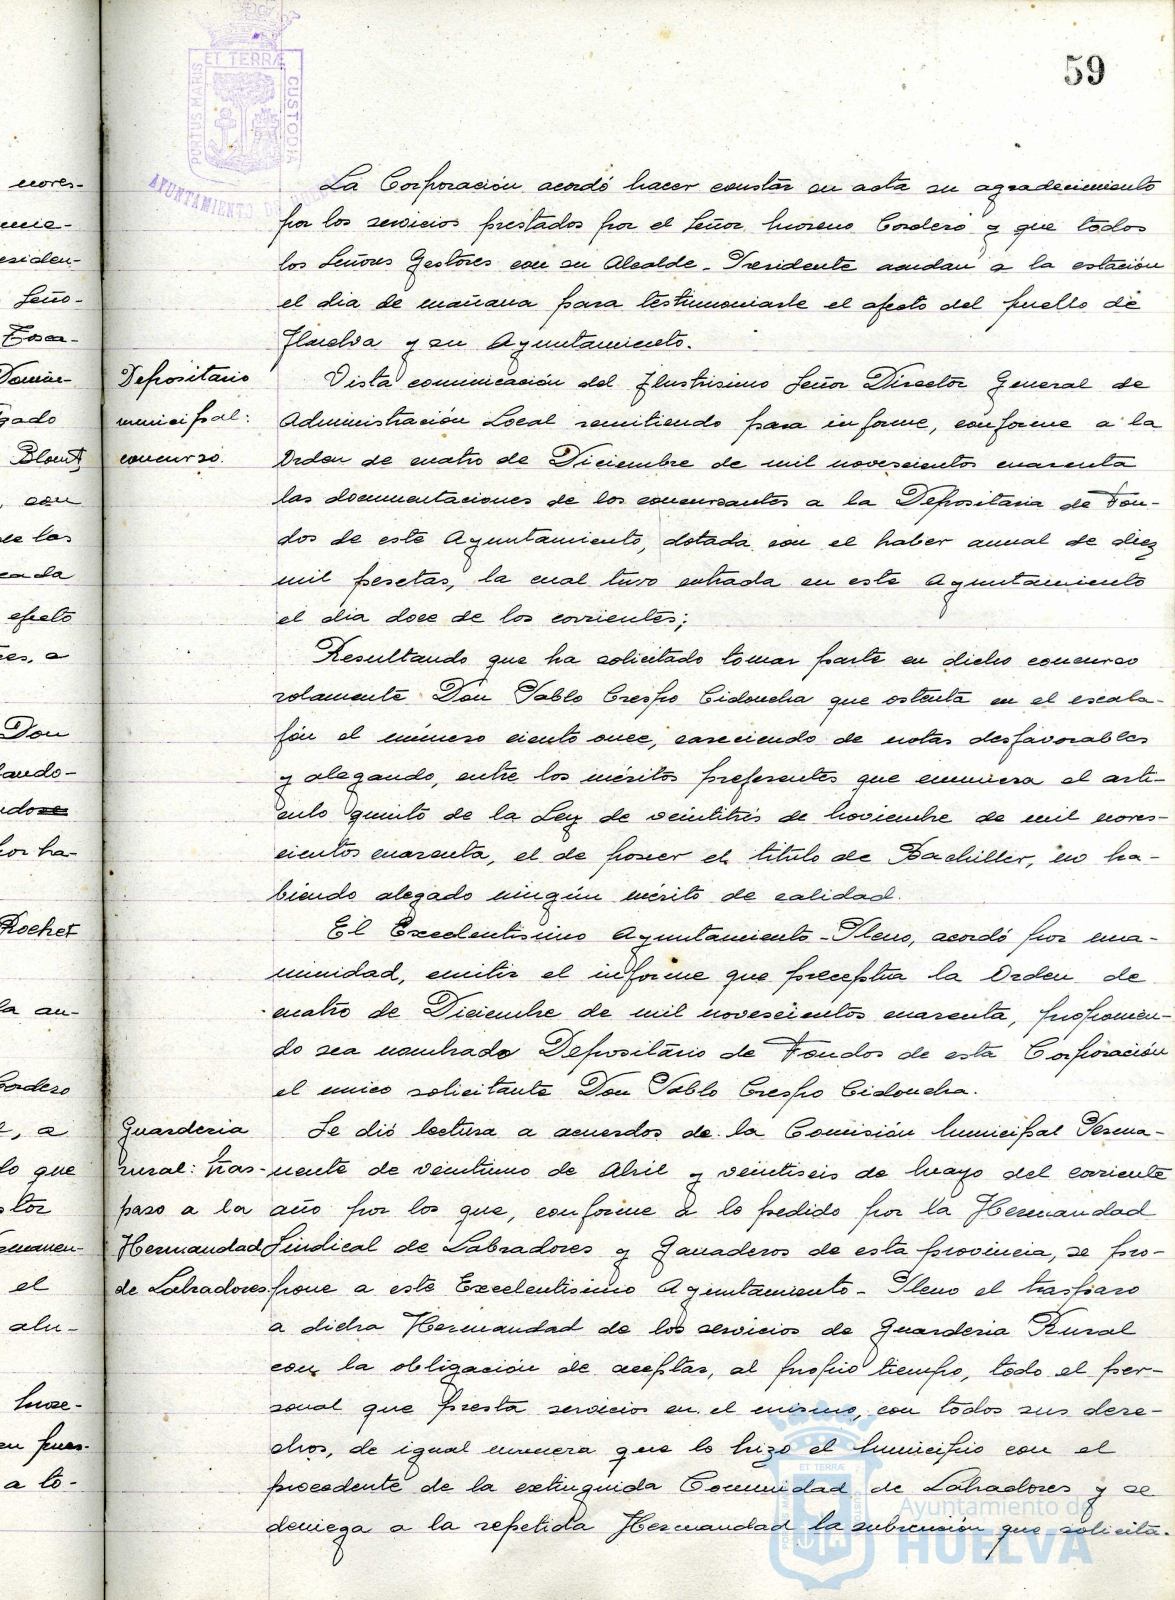 59
PORTUS MARIS ET TERRÆ CUSTODIA
AYUNTAMIENTO DE HUELVA
La Corporación acordó hacer constar en acta su agradecimiento
por los servicios prestados por el Señor Moreno Cordero y que todos
los Señores Gestores con su Alcalde-Presidente acudan a la estación
el dia de mañana para testimoniarle el afecto del pueblo de
Huelva y su Ayuntamiento.
Depositario
municipal:
concurso.
Vista comunicación del Ilustrisimo Señor Director General de
Administración Local remitiendo para informe, conforme a la
Orden de cuatro de Diciembre de mil novescientos cuarenta
las documentaciones de los concursantes a la Depositaria de Fon-
dos de este Ayuntamiento, dotada con el haber anual de diez
mil pesetas, la cual tuvo entrada en este Ayuntamiento
el dia doce de los corrientes;
Resultando que ha solicitado tomar parte en dicho concurso
solamente Don Pablo Crespo Cidoncha que ostenta en el escala-
fón el número ciento once, careciendo de notas desfavorables
y alegando, entre los méritos preferentes que enumera el arti-
culo quinto de la Ley de veintitrés de Noviembre de mil noves-
cientos cuarenta, el de poseer el titulo de Bachiller, no ha-
biendo alegado ningún mérito de calidad.
El Excelentisimo Ayuntamiento-Pleno, acordó por una-
nimidad, emitir el informe que preceptúa la Orden de
cuatro de Diciembre de mil novescientos cuarenta, proponien-
do sea nombrado Depositario de Fondos de esta Corporación
el unico solicitante Don Pablo Crespo Cidoncha.
Guarderia
rural: tras-
paso a la
Hermandad
de Labradores.
Se dió lectura a acuerdos de la Comisión Municipal Perma-
nente de veintiuno de Abril y veintiseis de Mayo del corriente
año por los que, conforme a lo pedido por la Hermandad
Sindical de Labradores y Ganaderos de esta provincia, se pro-
pone a este Excelentisimo Ayuntamiento-Pleno el traspaso
a dicha Hermandad de los servicios de Guarderia Rural
con la obligación de aceptar, al propio tiempo, todo el per-
sonal que presta servicios en el mismo, con todos sus dere-
chos, de igual manera que lo hizo el Municipio con el
procedente de la extinguida Comunidad de Labradores y se
deniega a la repetida Hermandad la subvención que solicita.
noves-
esiden-
Seño-
gado
con
de las
cada
efecto
Don
por ha-
Rochet
la an-
Cordero
lo que
el
a to-
Ayuntamiento de
HUELVA